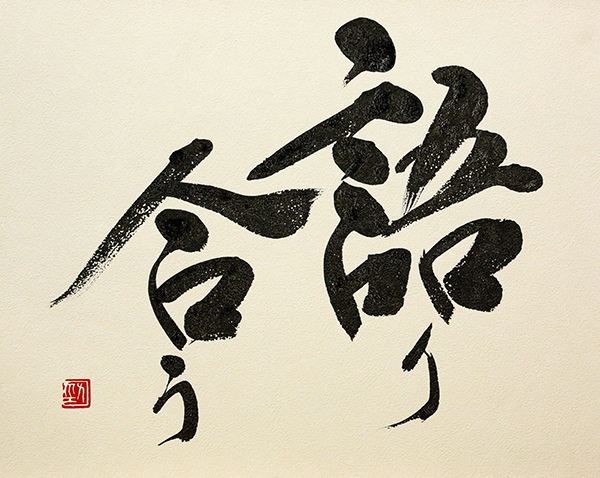 語り
合う